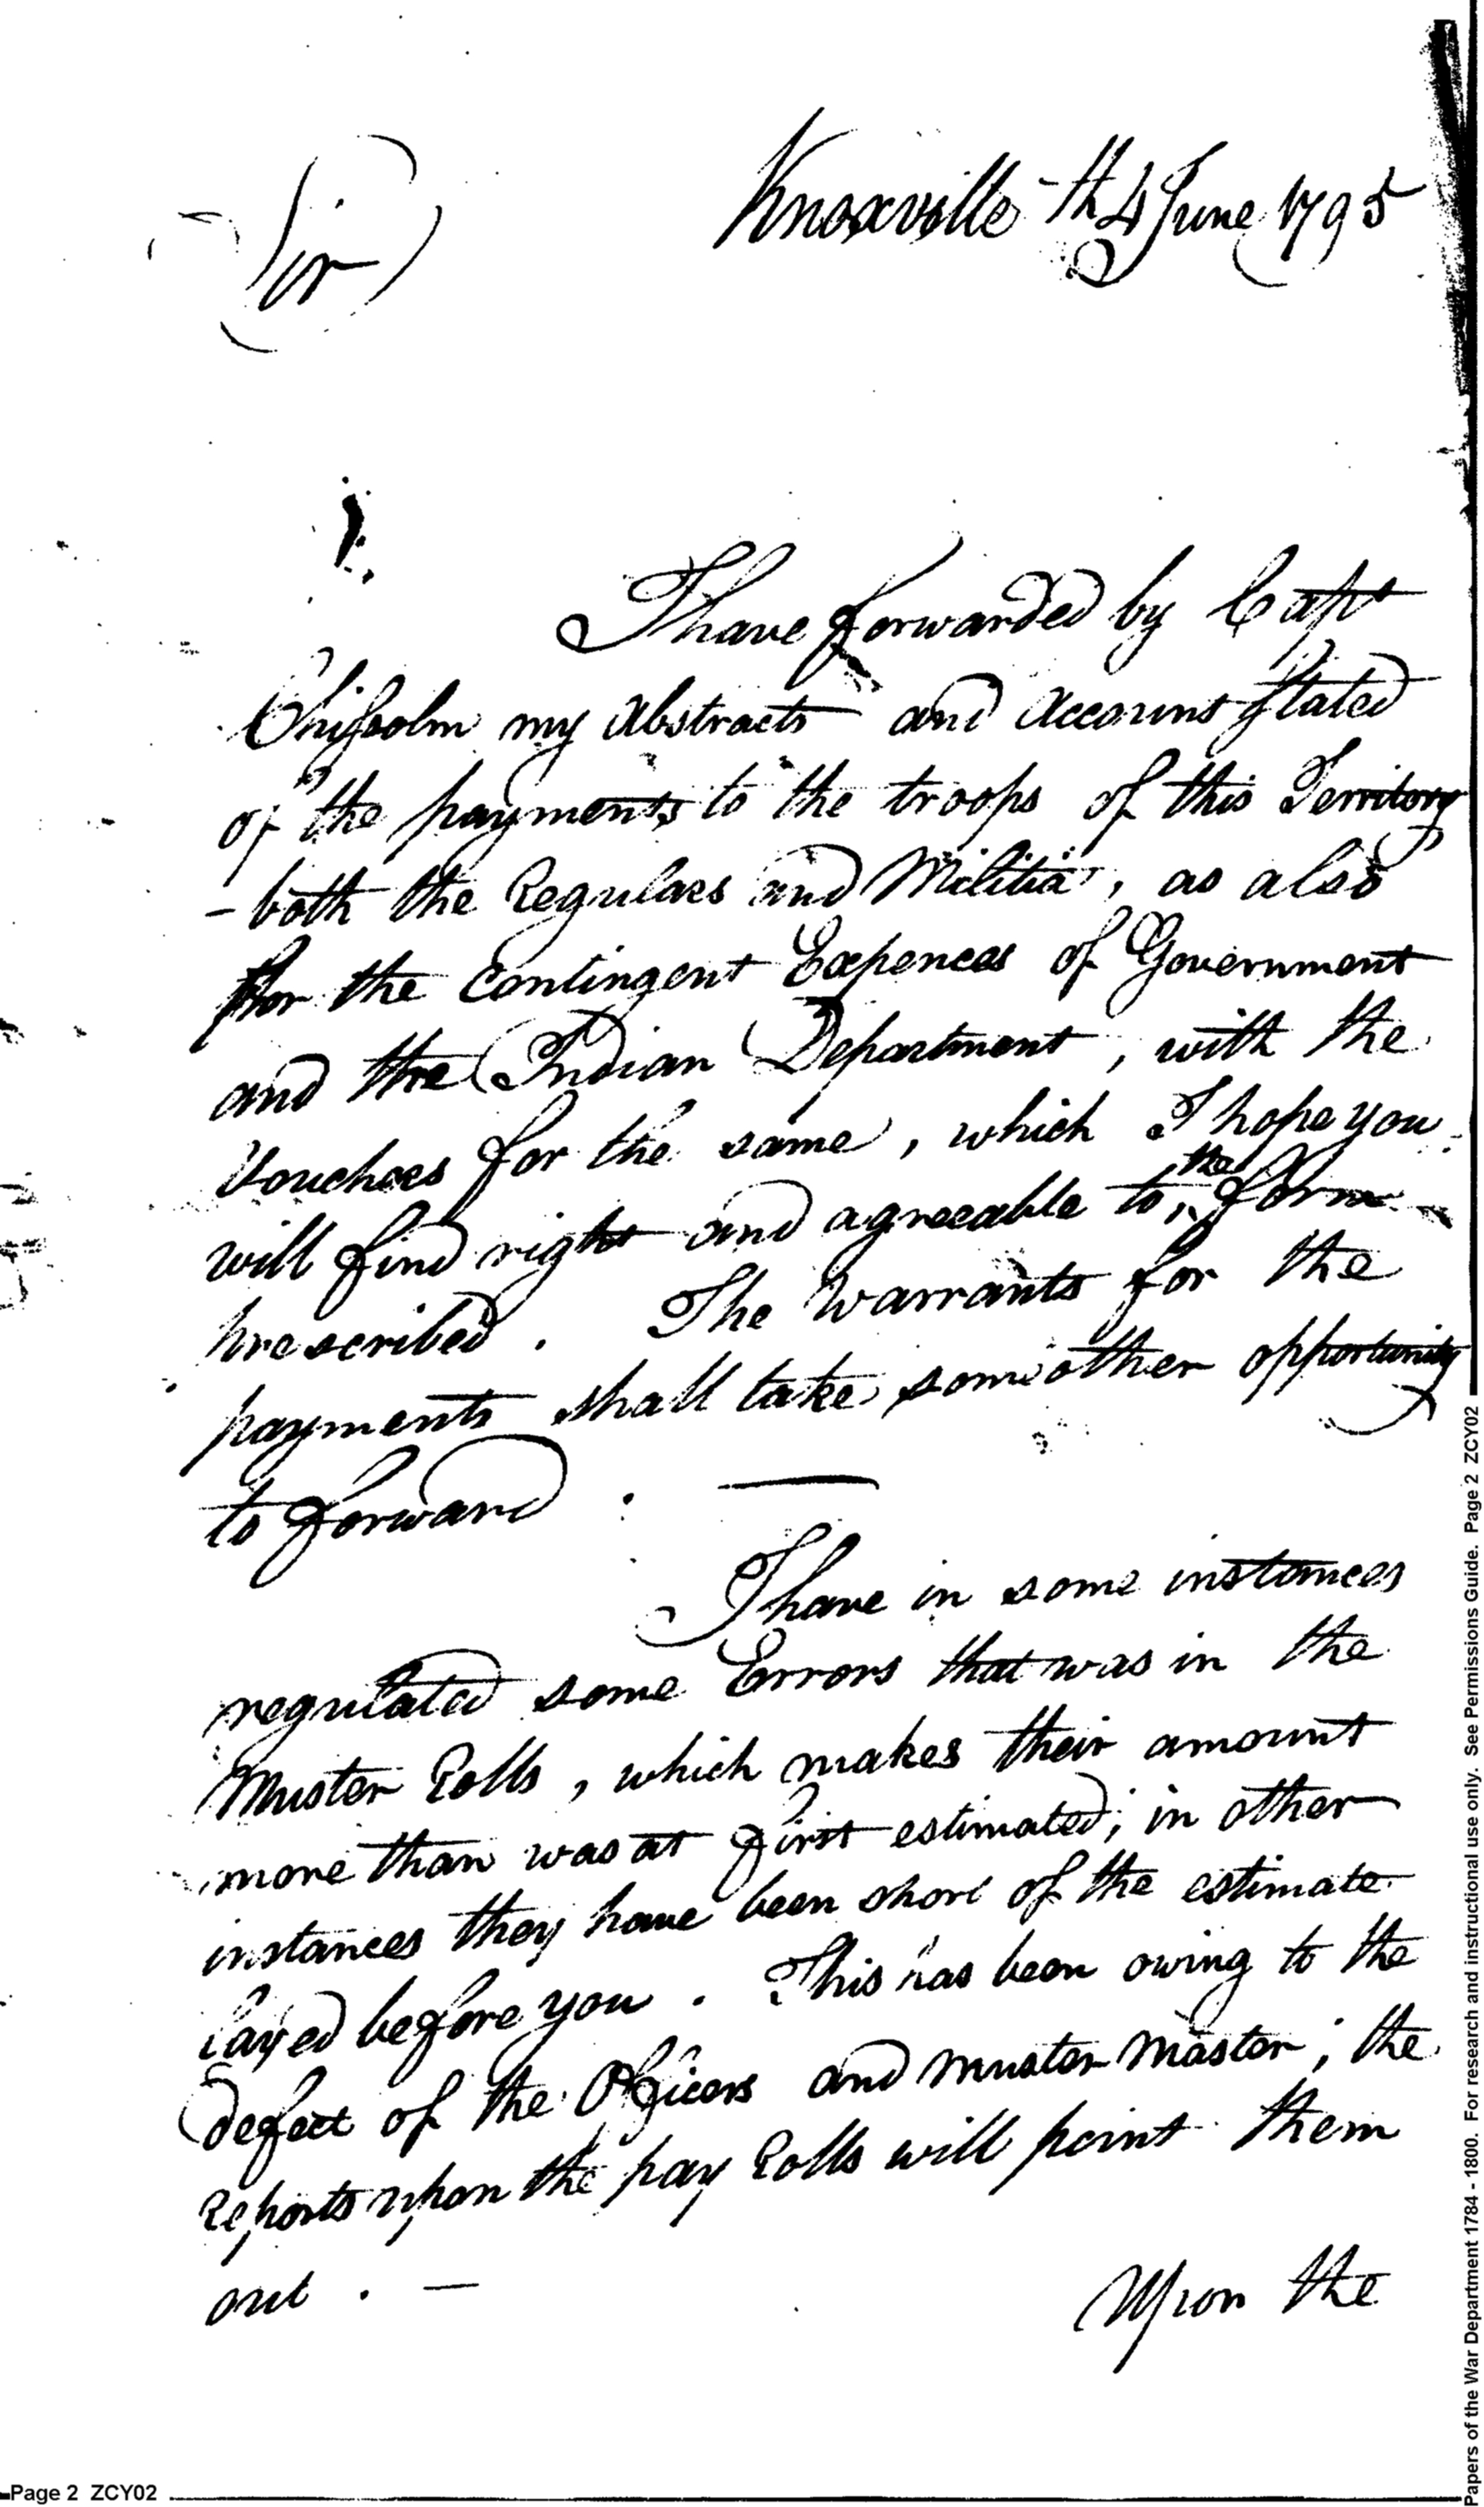 Knoxville th 4 June 1795
Sir
I have forwarded by Capt
Chissolm my Abstracts and Account Stated
of the payments to the troops of this Territory
- both the Regulars and Militia, as also
for the Contingent Expences of Government
and the Indian Department, with the
Vouchers for the same, which I hope you
will find right and agreeable to the form
prescribed. The Warrants for the
payments shall take some other opportunity
to forward. —
I have in some instances
regulated some Errors that was in the
Muster Rolls, which makes their amount
more than was at first estimated; in other
instances they have been short of the estimate
layed before you. This has been owing to the
defect of the Officers and muster master; the
Reports upon the pay Rolls will point them
out. —
Upon the
Page 2 ZCY02
Papers of the War Department 1784 - 1800. For research and instructional use only. See Permissions Guide. Page 2 ZCY02